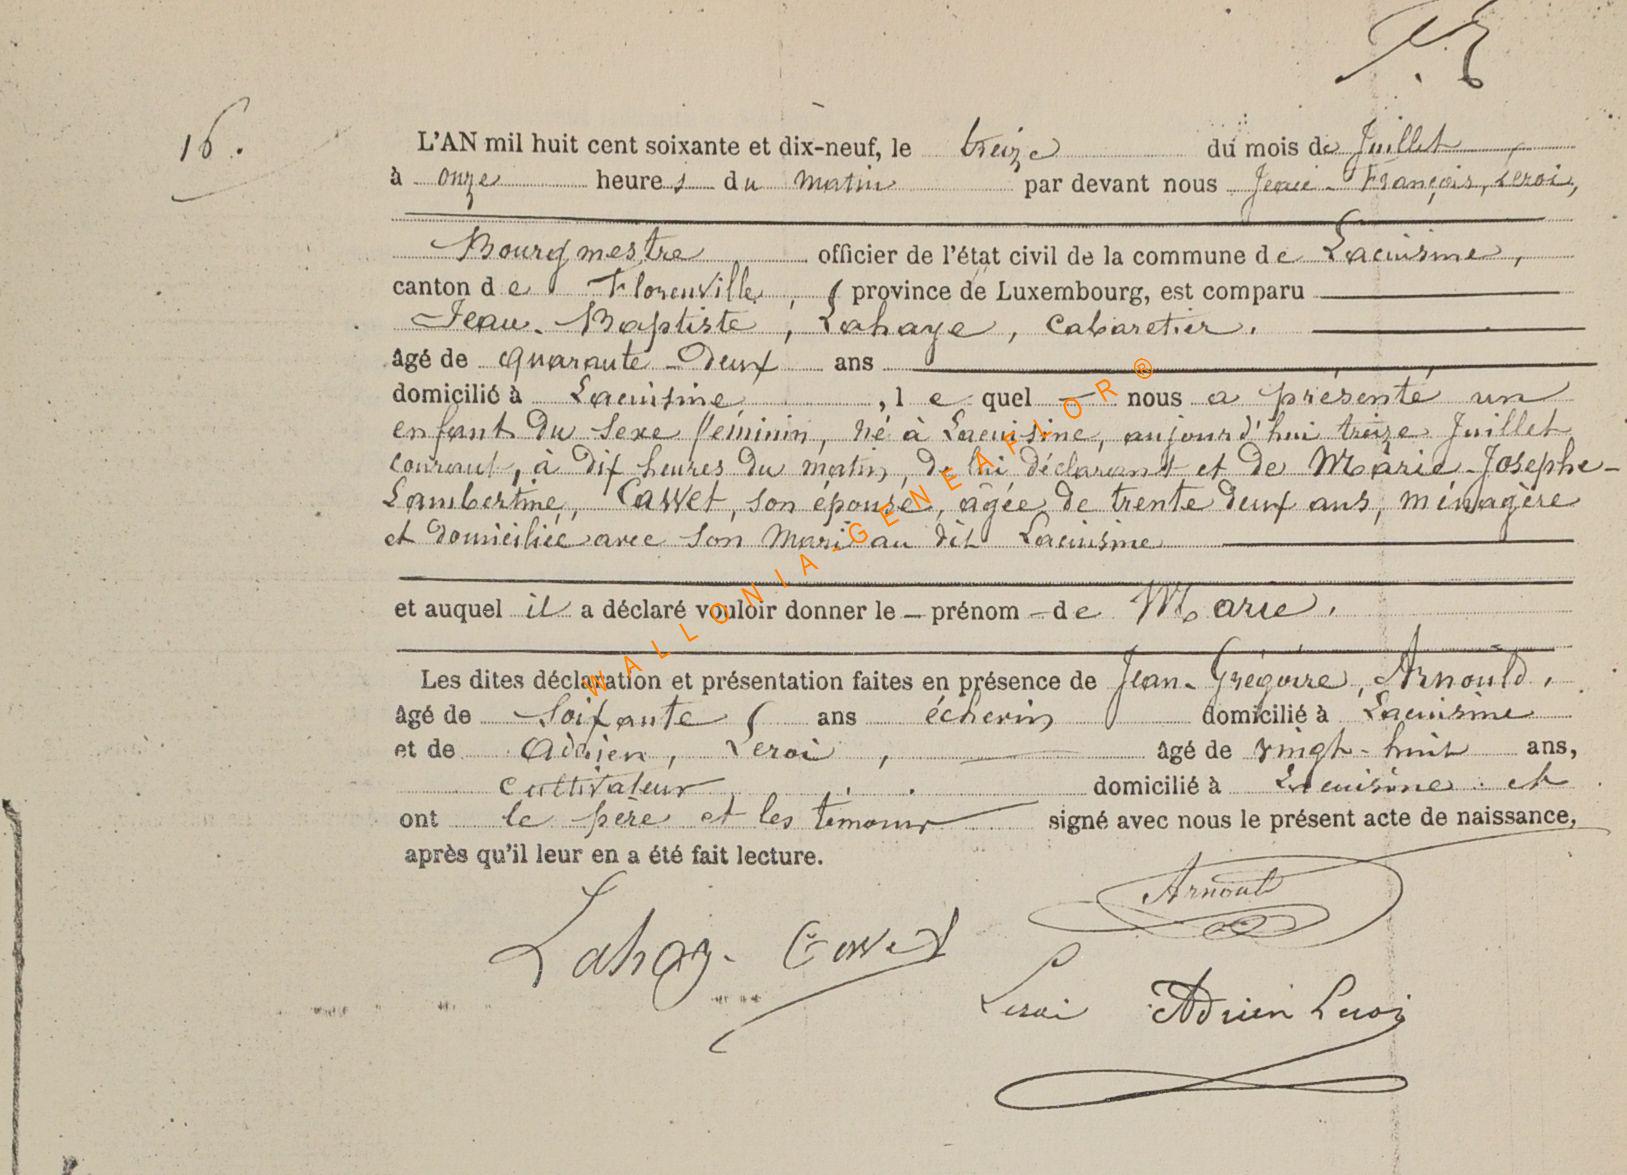 16.
L'AN mil huit cent soixante et dix-neuf, le treize du mois de Juillet
à onze heures du matin par devant nous Jean-François, Leroi,
Bourgmestre officier de l'état civil de la commune de Lacuisine,
canton de Florenville, province de Luxembourg, est comparu
Jean-Baptiste, Lahaye, Cabaretier.
âgé de quarante-deux ans
domicilié à Lacuisine, lequel nous a présenté un
enfant du sexe féminin, né à Lacuisine, aujourd'hui treize Juillet
courant, à dix heures du matin, de lui déclarant et de Marie-Josephe-
Lambertine, Cawet, son épouse, âgée de trente deux ans, ménagère
et domiciliée avec son mari au dit Lacuisine
et auquel il a déclaré vouloir donner le prénom de Marie.
Les dites déclaration et présentation faites en présence de Jean-Grégoire, Arnould,
âgé de soixante ans échevin domicilié à Lacuisine
et de Adrien, Leroi, âgé de vingt-huit ans,
cultivateur domicilié à Lacuisine et
ont le père et les témoins signé avec nous le présent acte de naissance,
après qu'il leur en a été fait lecture.
Arnould
Lahay-Cawet
Leroi Adrien Leroi
WALLONIA-GENEAFLOR®